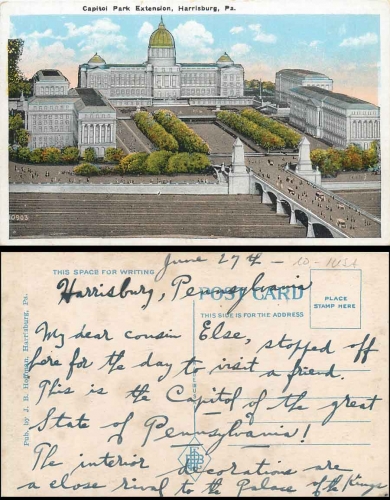 Capitol Park Extension, Harrisburg, Pa.
June 27th - 10-USA
THIS SPACE FOR WRITING
Harrisburg, Pennsylvania
POST CARD
THIS SIDE IS FOR THE ADDRESS
PLACE
STAMP HERE
Pub. by J. B. Hoffman, Harrisburg, Pa.
My dear cousin Else, stopped off
here for the day to visit a friend.
This is the Capitol of the great
State of Pennsylvania!
The interior decorations are
a close rival to the Palace of the Kings